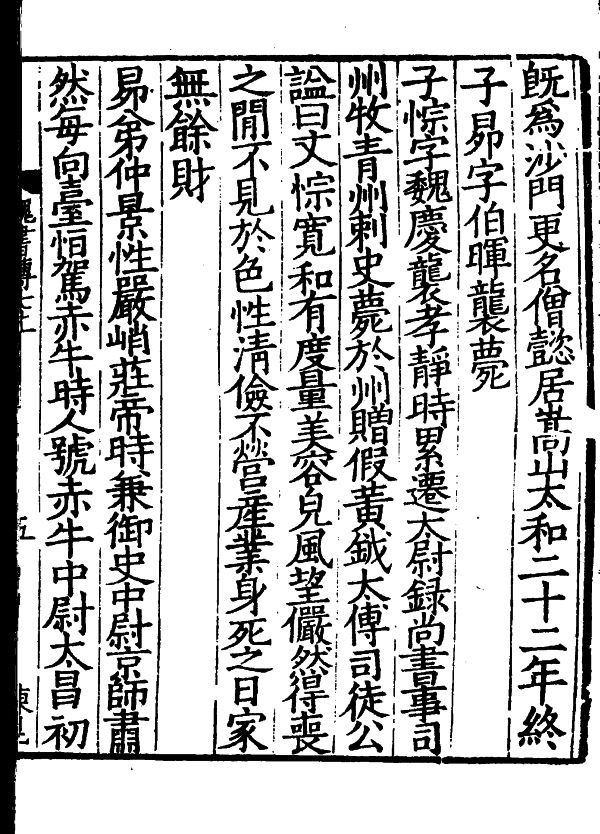 既為沙門更名僧懿居嵩山太和二十二年終
子昴字伯暉襲薨
子悰字魏慶襲孝靜時累遷太尉錄尚書事司
州牧青州刺史薨於州贈假黃鉞太傅司徒公
謚曰文悰寬和有度量美容皃風望儼然得喪
之閒不見於色性清儉不營產業身死之日家
無餘財
昴弟仲景性嚴峭莊帝時兼御史中尉京師肅
然每向臺恒駕赤牛時人號赤牛中尉太昌初